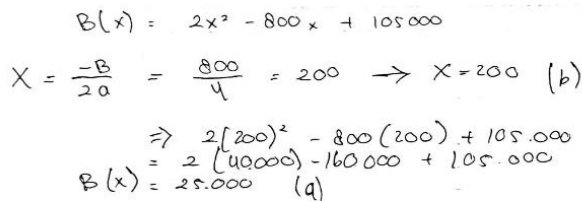 B(x) = 2x² - 800x + 105000
X = -B/2a = 800/4 = 200 → X = 200 (b)
⇒ 2(200)² - 800(200) + 105.000
= 2(40.000) - 160000 + 105.000
B(x) = 25.000 (a)